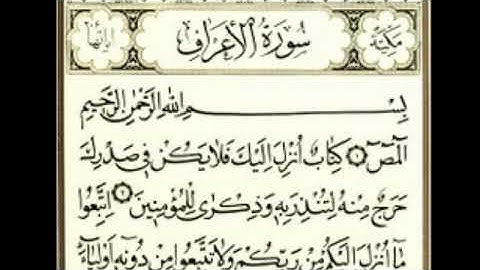 مكية سُورَةُ الأَعْرَافِ
بِسْمِ اللهِ الرَّحْمٰنِ الرَّحِيمِ
الٓمٓصٓ ۝١ كِتَابٌ أُنْزِلَ إِلَيْكَ فَلَا يَكُنْ فِي صَدْرِكَ
حَرَجٌ مِنْهُ لِتُنْذِرَ بِهِ وَذِكْرَى لِلْمُؤْمِنِينَ ۝٢ اِتَّبِعُوا
مَا أُنْزِلَ إِلَيْكُمْ مِنْ رَبِّكُمْ وَلَا تَتَّبِعُوا مِنْ دُونِهِ أَوْلِيَاءَ